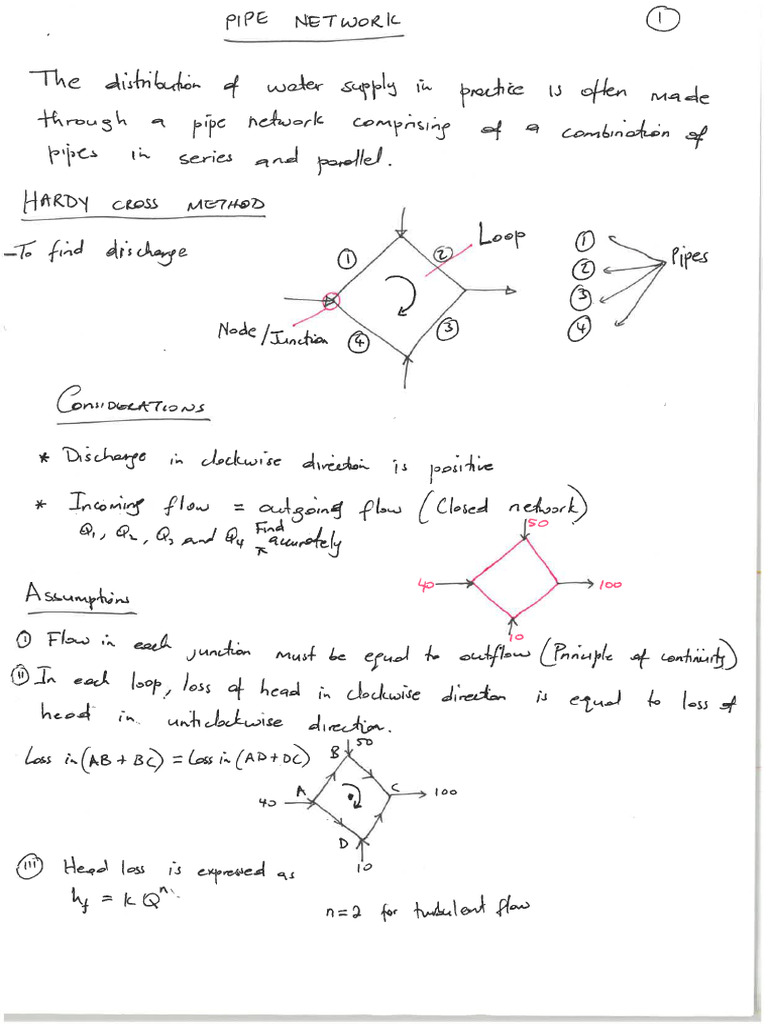 PIPE NETWORK
1
The distribution of water supply in practice is often made
through a pipe network comprising of a combination of
pipes in series and parallel.
HARDY CROSS METHOD
-To find discharge
1
2
Loop
Node/Junction
4
3
1
2
3
4
Pipes
CONSIDERATIONS
* Discharge in clockwise direction is positive
* Incoming flow = outgoing flow (Closed network)
Q1, Q2, Q3 and Q4 Find accurately
50
40
100
10
Assumptions
i Flow in each junction must be equal to outflow (Principle of continuity)
ii In each loop, loss of head in clockwise direction is equal to loss of
head in unticlockwise direction.
Loss in (AB + BC) = Loss in (AD + DC)
B
50
A
C
100
40
D
10
iii Head loss is expressed as
hf = kQ^n
n=2 for turbulent flow